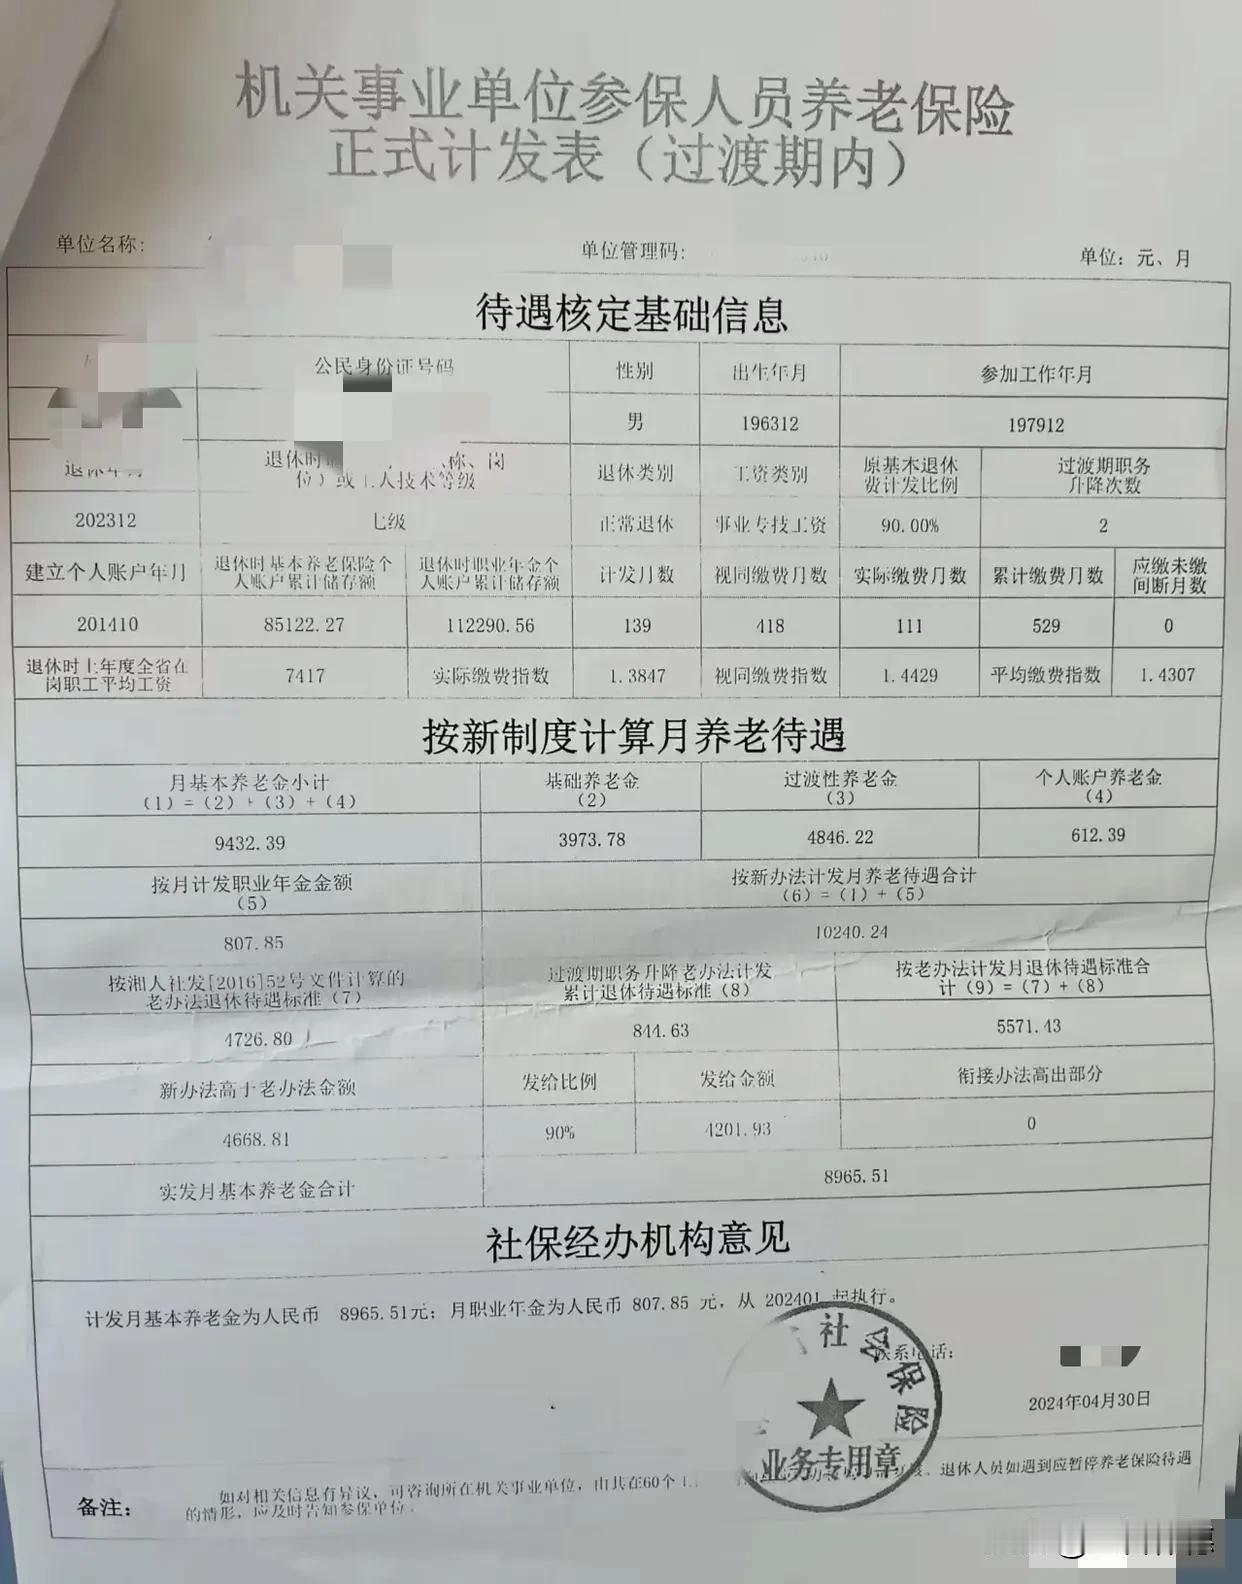 机关事业单位参保人员养老保险
正式计发表（过渡期内）
单位名称: 单位管理码: 单位：元、月
待遇核定基础信息
公民身份证号码 性别 出生年月 参加工作年月
男 196312 197912
退休年月 退休时 称、岗
位）或工人技术等级 退休类别 工资类别 原基本退休
费计发比例 过渡期职务
升降次数
202312 七级 正常退休 事业专技工资 90.00% 2
建立个人账户年月 退休时基本养老保险个
人账户累计储存额 退休时职业年金个
人账户累计储存额 计发月数 视同缴费月数 实际缴费月数 累计缴费月数 应缴未缴
间断月数
201410 85122.27 112290.56 139 418 111 529 0
退休时上年度全省在
岗职工平均工资 7417 实际缴费指数 1.3847 视同缴费指数 1.4429 平均缴费指数 1.4307
按新制度计算月养老待遇
月基本养老金小计
（1）=（2）+（3）+（4） 基础养老金
（2） 过渡性养老金
（3） 个人账户养老金
（4）
9432.39 3973.78 4846.22 612.39
按月计发职业年金金额
（5） 按新办法计发月养老待遇合计
（6）=（1）+（5）
807.85 10240.24
按湘人社发[2016]52号文件计算的
老办法退休待遇标准（7） 过渡期职务升降老办法计发
累计退休待遇标准（8） 按老办法计发月退休待遇标准合
计（9）=（7）+（8）
4726.80 844.63 5571.43
新办法高于老办法金额 发给比例 发给金额 衔接办法高出部分
4668.81 90% 4201.93 0
实发月基本养老金合计 8965.51
社保经办机构意见
计发月基本养老金为人民币 8965.51元; 月职业年金为人民币 807.85 元，从 202401 起执行。
联系电话:
2024年04月30日
社会保险
业务专用章
备注: 如对相关信息有异议，可咨询所在机关事业单位，由其在60个工 退休人员如遇到应暂停养老保险待遇
的情形，应及时告知参保单位.